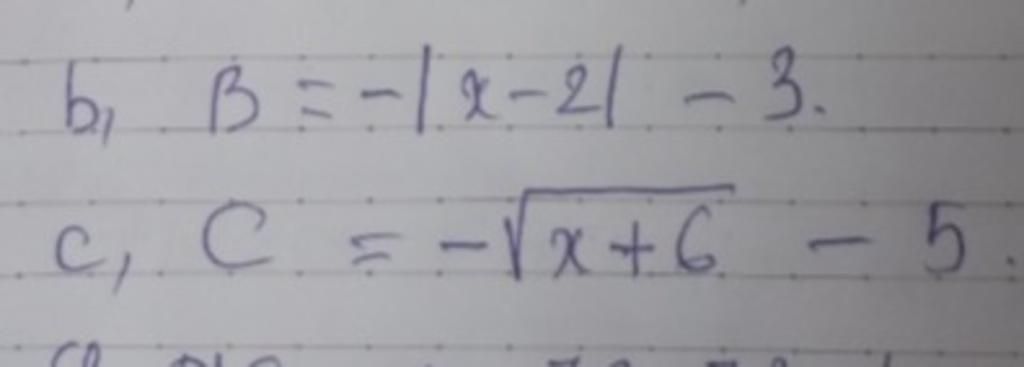 b, B = -|x-2| - 3.
c, C = -√(x+6) - 5.